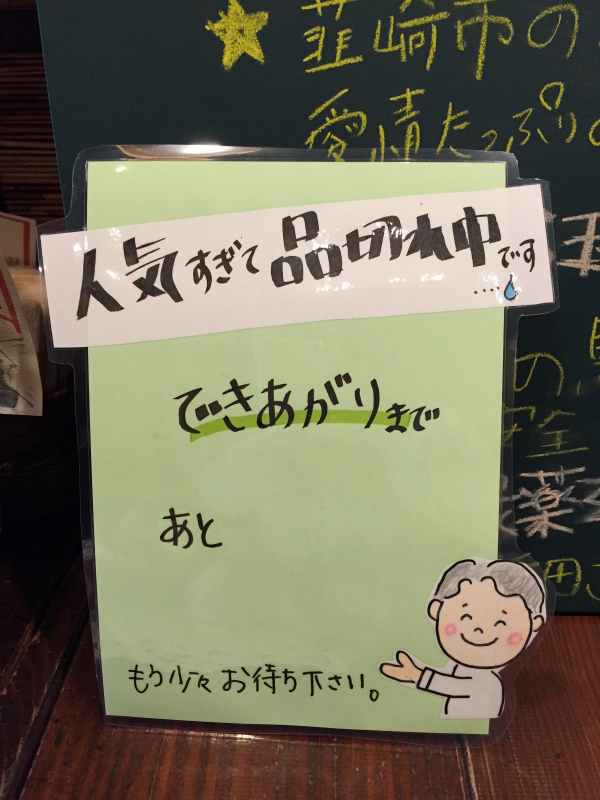 韮崎市の
愛情たっぷりの
人気すぎて品切れ中です
....
できあがりまで
あと
もう少々お待ち下さい。
の
安全
薬